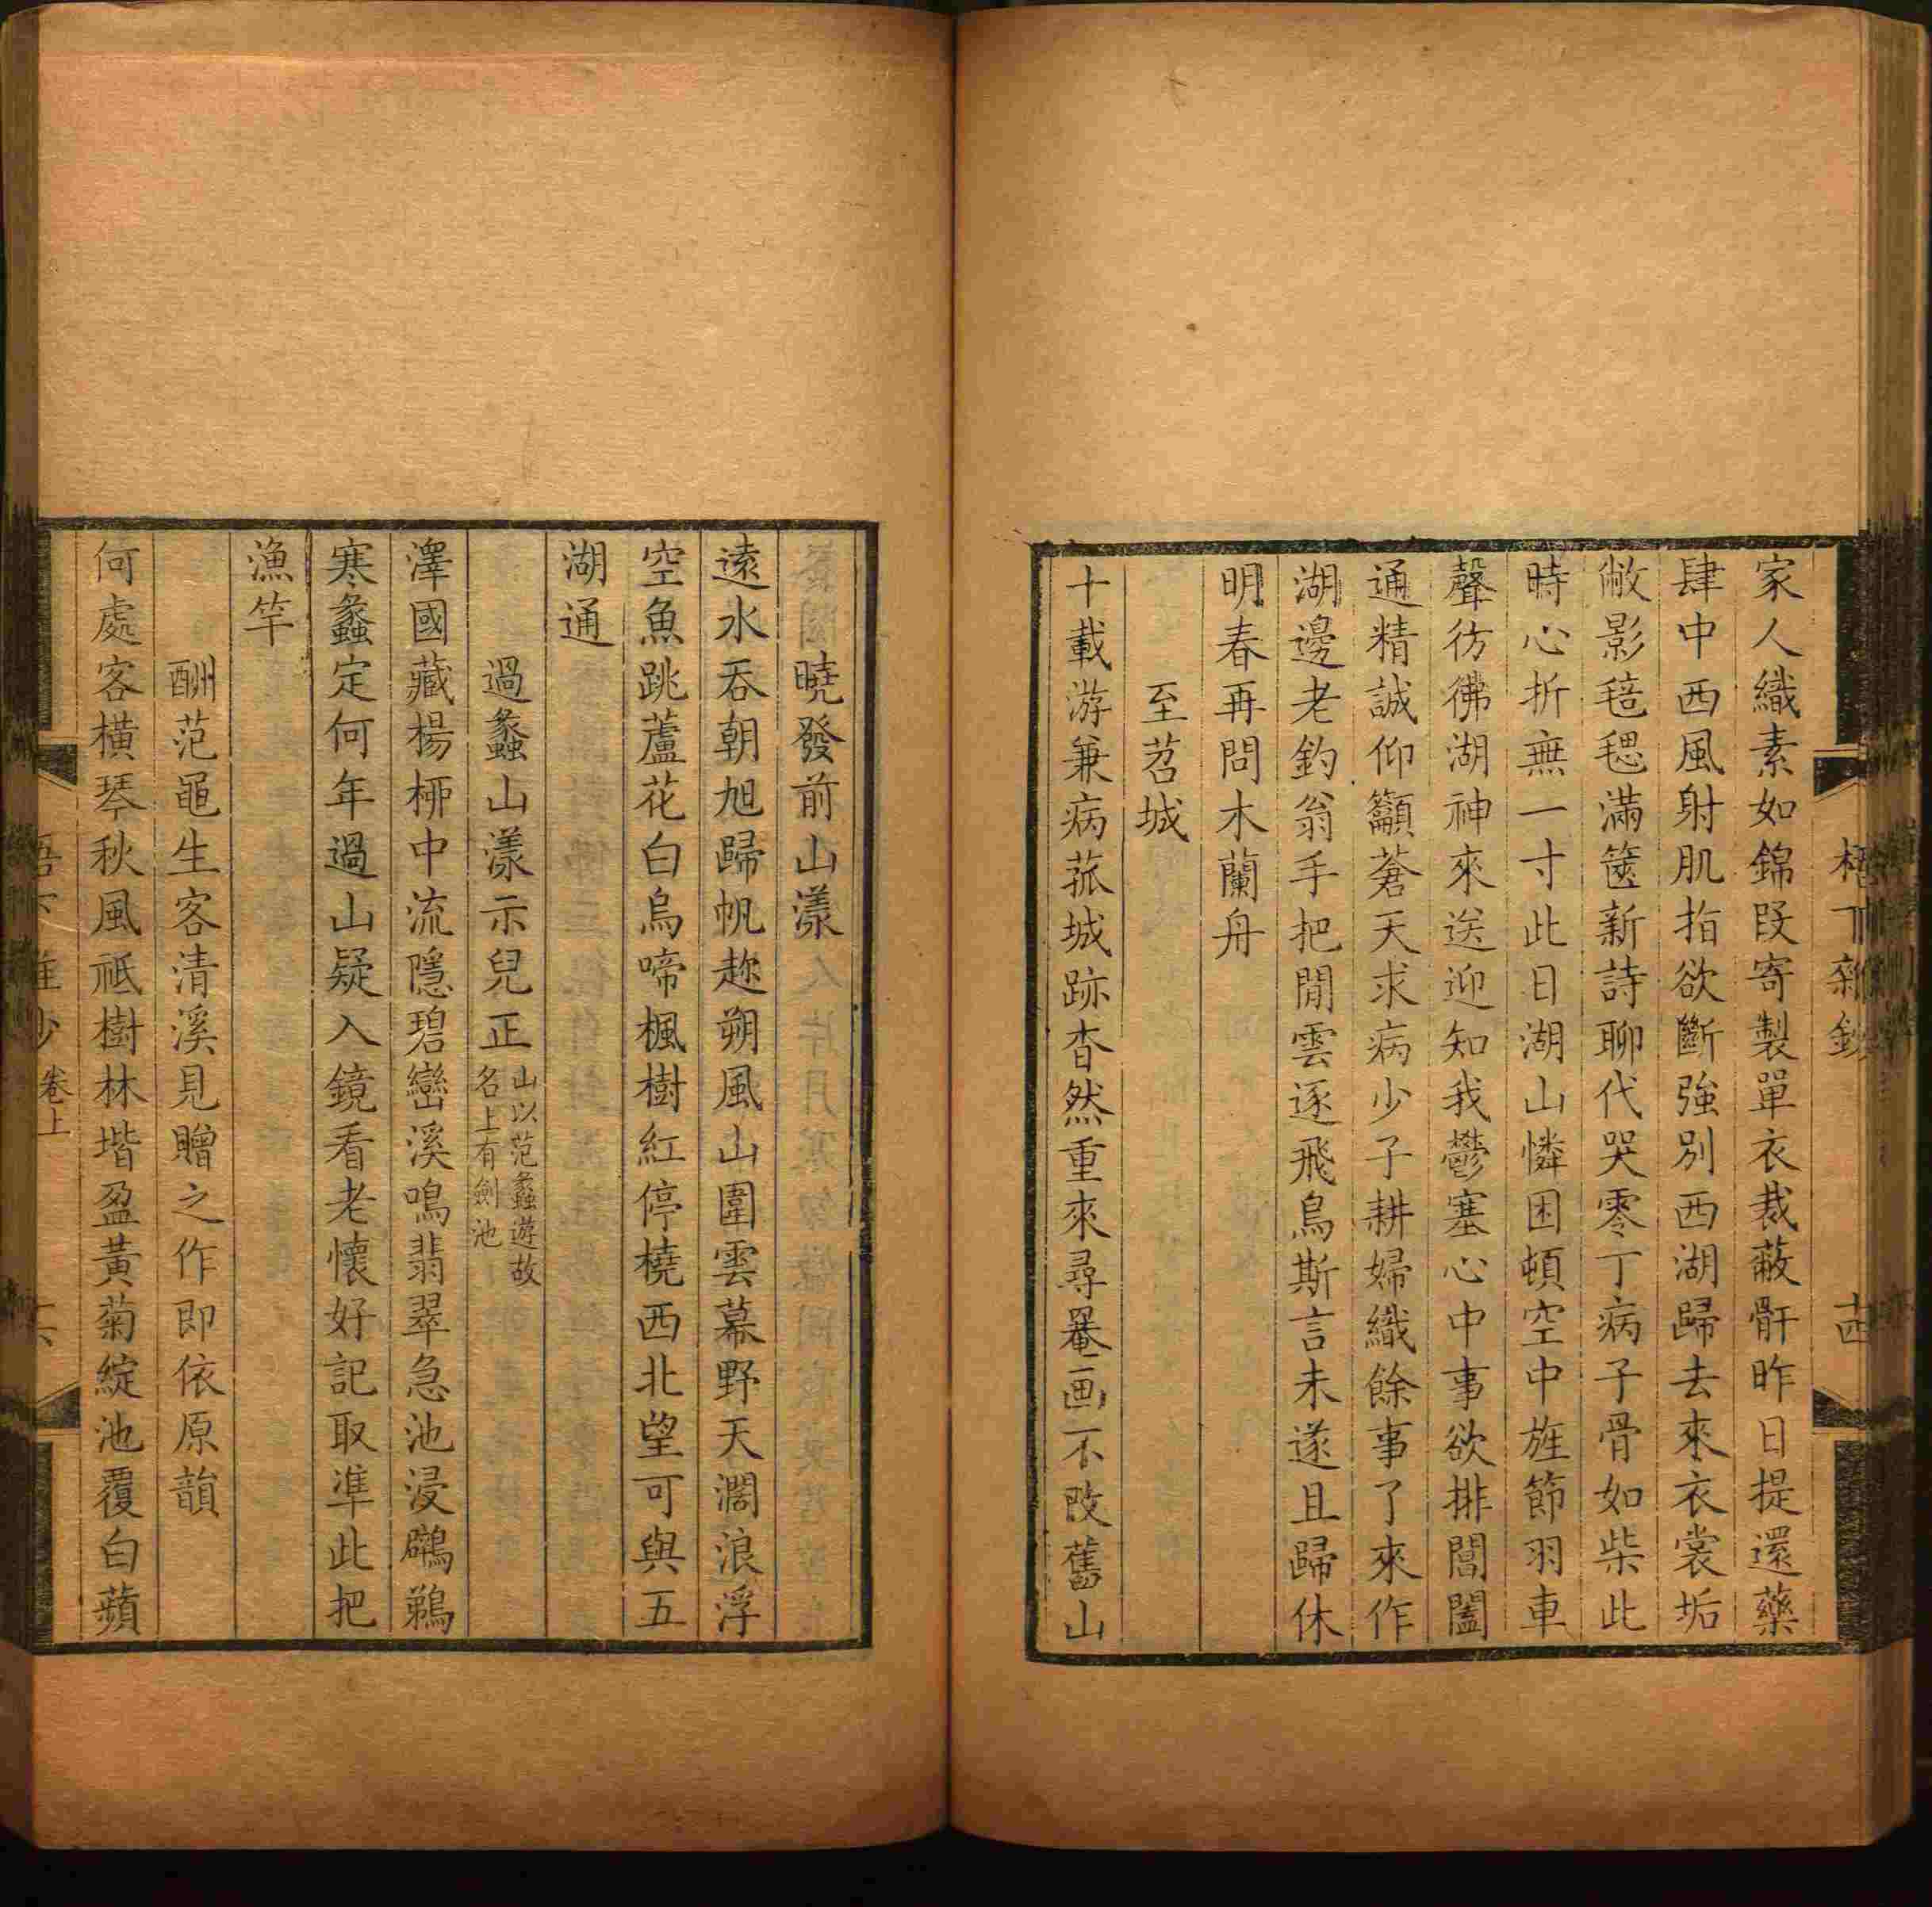 家人織素如錦段寄製單衣裁蔽骭昨日提還藥
肆中西風射肌指欲斷強別西湖歸去來衣裳垢
敝影毰毸滿篋新詩聊代哭零丁病子骨如柴此
時心折無一寸此日湖山憐困頓空中旌節羽車
聲彷彿湖神來送迎知我鬱塞心中事欲排閶闔
通精誠仰籲蒼天求病少子耕婦織餘事了來作
湖邊老釣翁手把閒雲逐飛鳥斯言未遂且歸休
明春再問木蘭舟
至苕城
十載游兼病菰城跡杳然重來尋罨画不改舊山
曉發前山漾
遠水吞朝旭歸帆趂朔風山圍雲幕野天濶浪浮
空魚跳蘆花白烏啼楓樹紅停橈西北望可與五
湖通
過蠡山漾示兒正山以范蠡遊故名上有劍池
澤國藏楊桺中流隱碧巒溪鳴翡翠急池浸鸊鵜
寒蠡定何年過山疑入鏡看老懷好記取準此把
漁竿
酬范黽生客清溪見贈之作即依原韻
何處客橫琴秋風祗樹林堦盈黃菊綻池覆白蘋
卷上